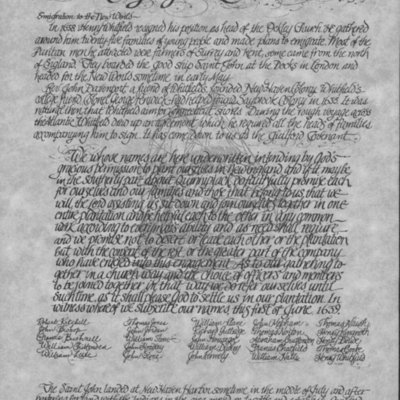 Emigration to the New World
In 1638 Henry Whitfield resigned his position as head of the Ockley Church. He gathered
around him twenty-five families of young people and made plans to emigrate. Most of the
Puritan men he attracted were farmers of Surrey and Kent, some came from the north
of England. They boarded the good ship Saint John at the Docks in London and
headed for the New World sometime in early May.
Rev. John Davenport, a friend of Whitfield's, founded New Haven Colony. Whitfield's
college friend Colonel George Fenwick had helped found Saybrook Colony in 1635. It was
toward them that Whitfield and his families During the rough voyage across
the Atlantic Whitfield drew up an agreement which he required all the heads of families
accompanying him to sign. It has come down to us as the Guilford Covenant.
We whose names are here underwritten, intending by God's
gracious permission to plant ourselves in New England and if it may be
in the southerly part about Quinnypiack do faithfully promise each
for ourselves and our families and those that belong to us that we
will, the Lord assisting us, sit down and join ourselves together in one
entire plantation and be helpful each to the other in any common
work according to every man's ability and as need shall require
and we promise not to desert or leave each other or the plantation
but with the consent of the rest or the greater part of the company
who have entered into this engagement. As to our gathering to-
gether in a church way and the choice of officers and members
to be joined together in that way we do refer ourselves until
such time as it shall please God to settle us in our plantation. In
witness whereof we subscribe our names this first of June 1639.
Robert Kitchell Thomas Jones William Stone John Mepham Thomas
John Bishop John Jordan Richard Guttridge Thomas Norton Henry
Francis Bushnell William Stone John Abraham Cruttenden Henry Dowd
William Chittenden John William Dudley Francis Chatfield Thomas Cooke
William Leete John Stone John Parmely William Halle Henry Whitfield
The Saint John landed at New Haven Harbor sometime in the middle of July and after